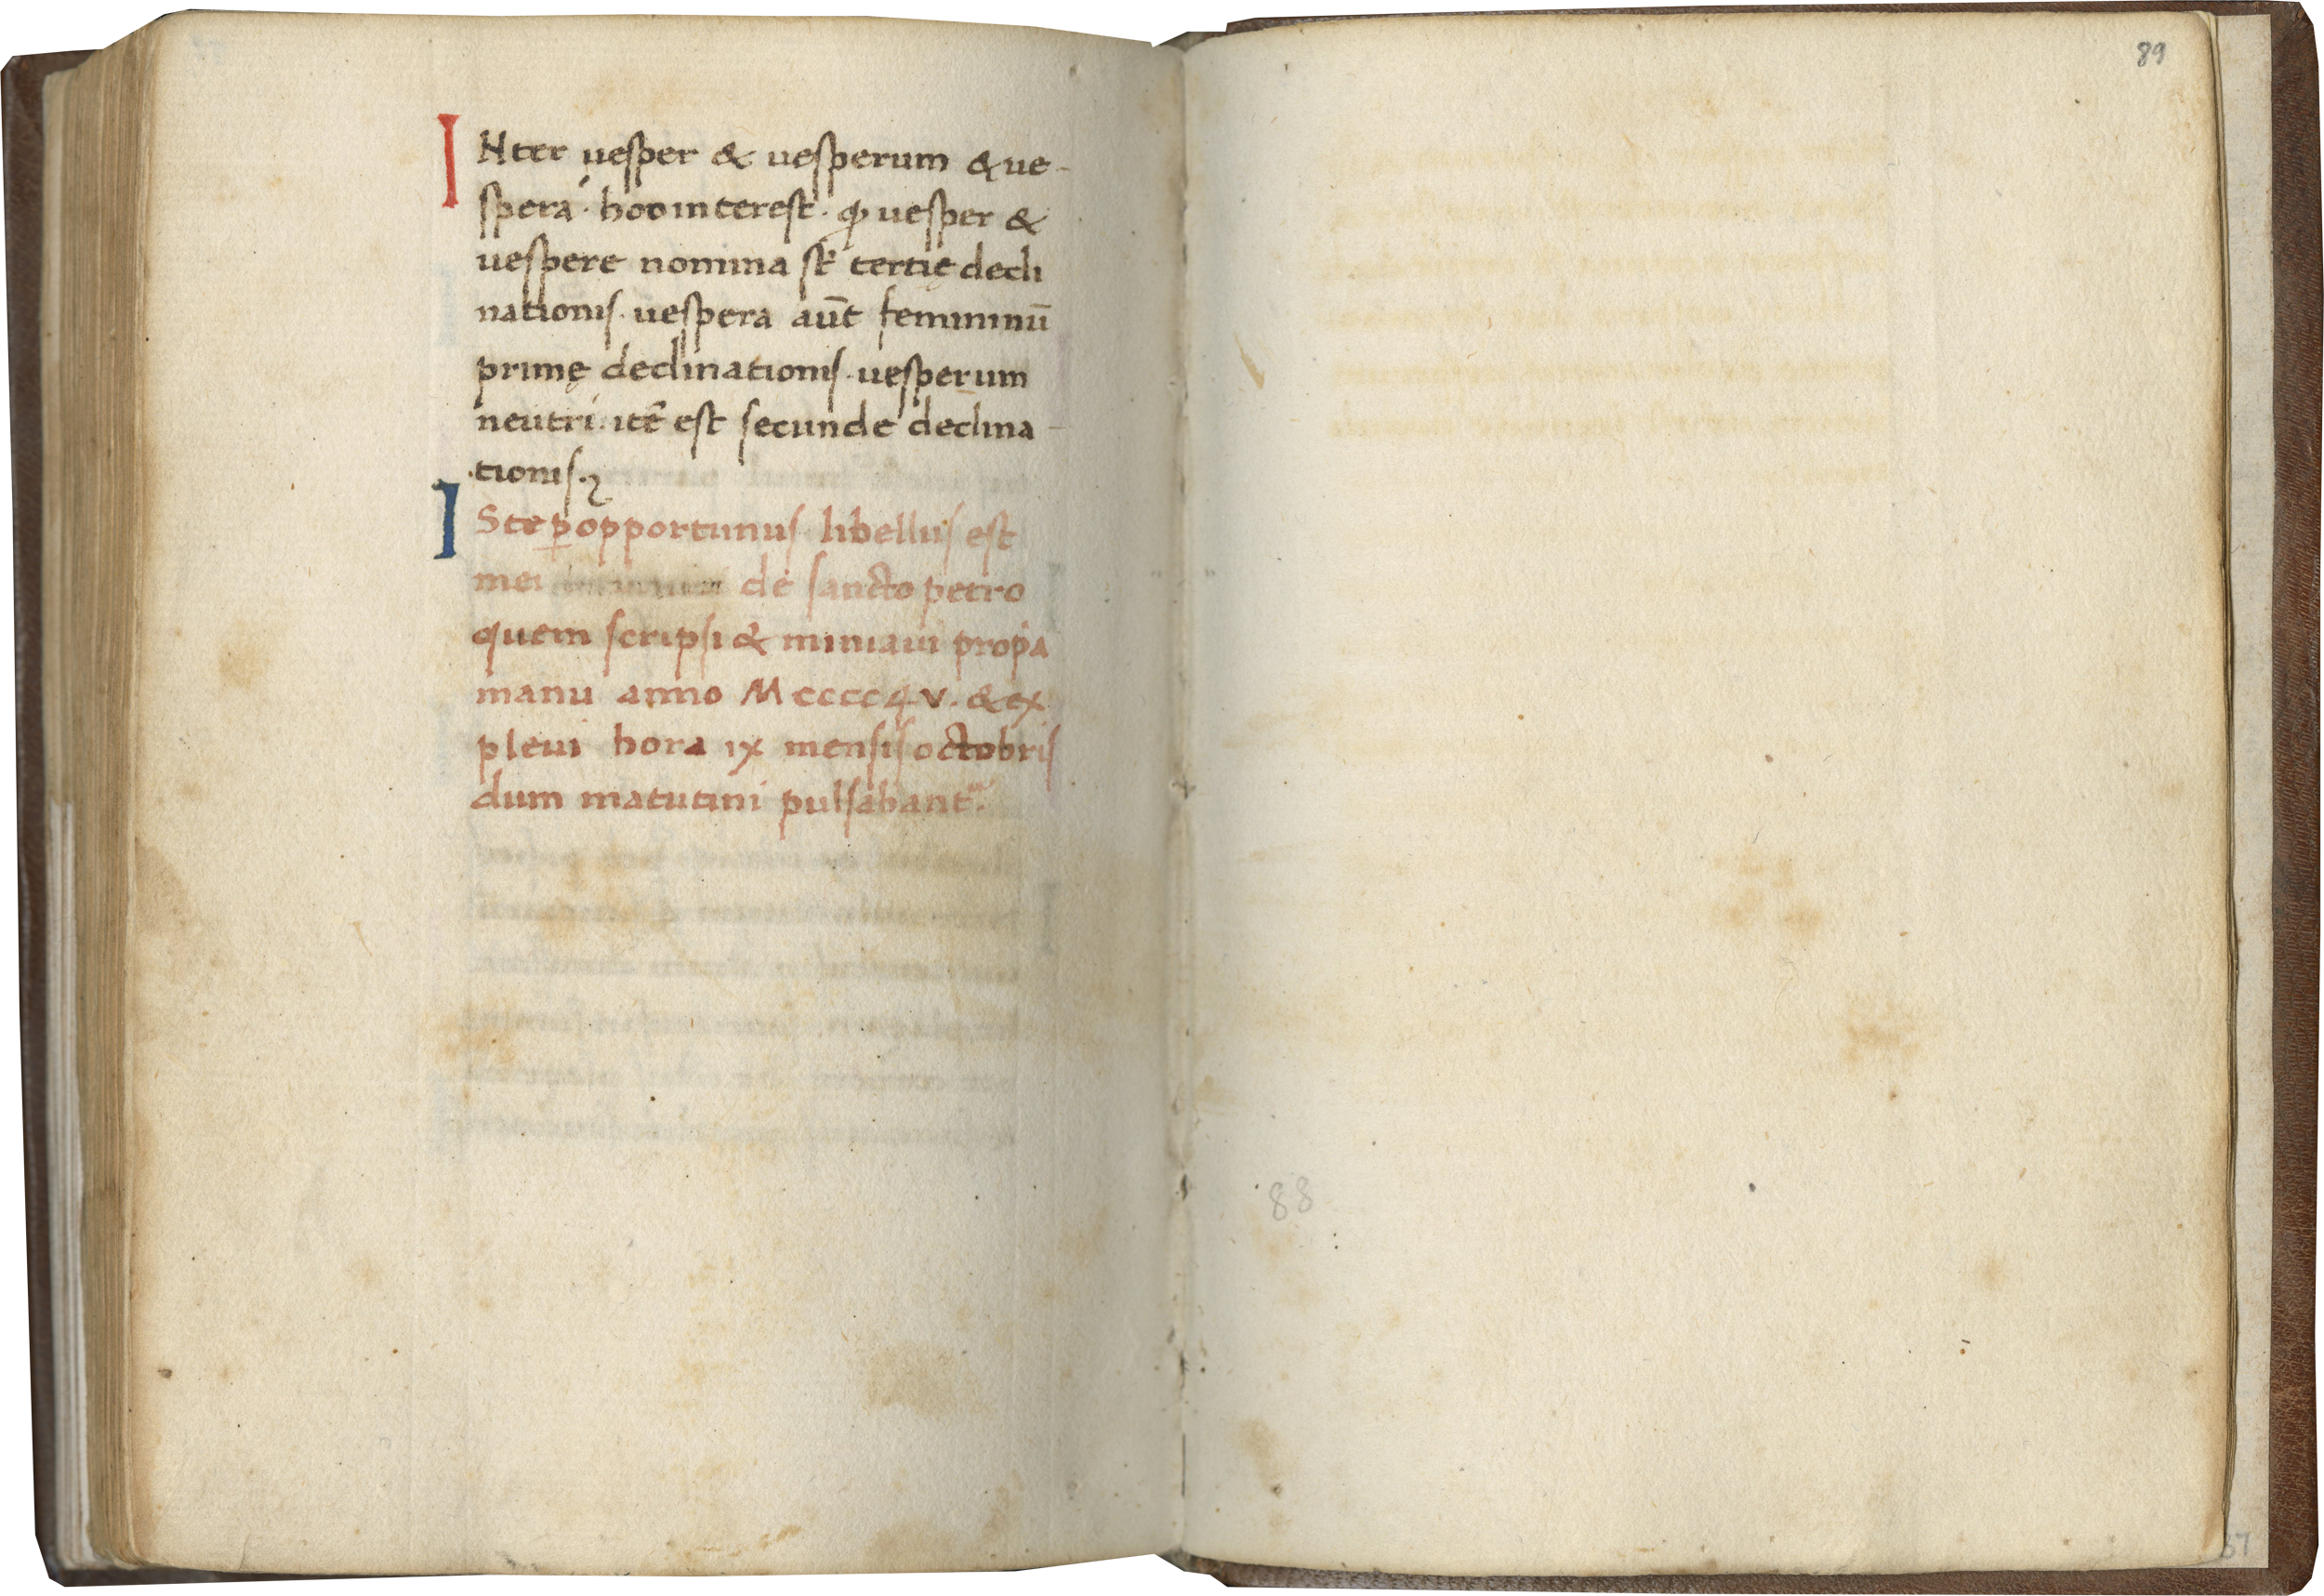 INter uesper & uesperum & ue-
sperá· hoc interest· ꝙ uesper &
uespere nomina sť tertię decli
nationis· uespera aūt femininū
primę declinationis· uesperum
neutri· itē est secunde declina-
tionis·
ISte ꝑopportunus libellus est
mei de sancto petro
quem scripsi & miniaui propa
manu anno Mcccc4v· & ex
pleui hora ix mensis octobris
dum matutini pulsabant·
89
88
87